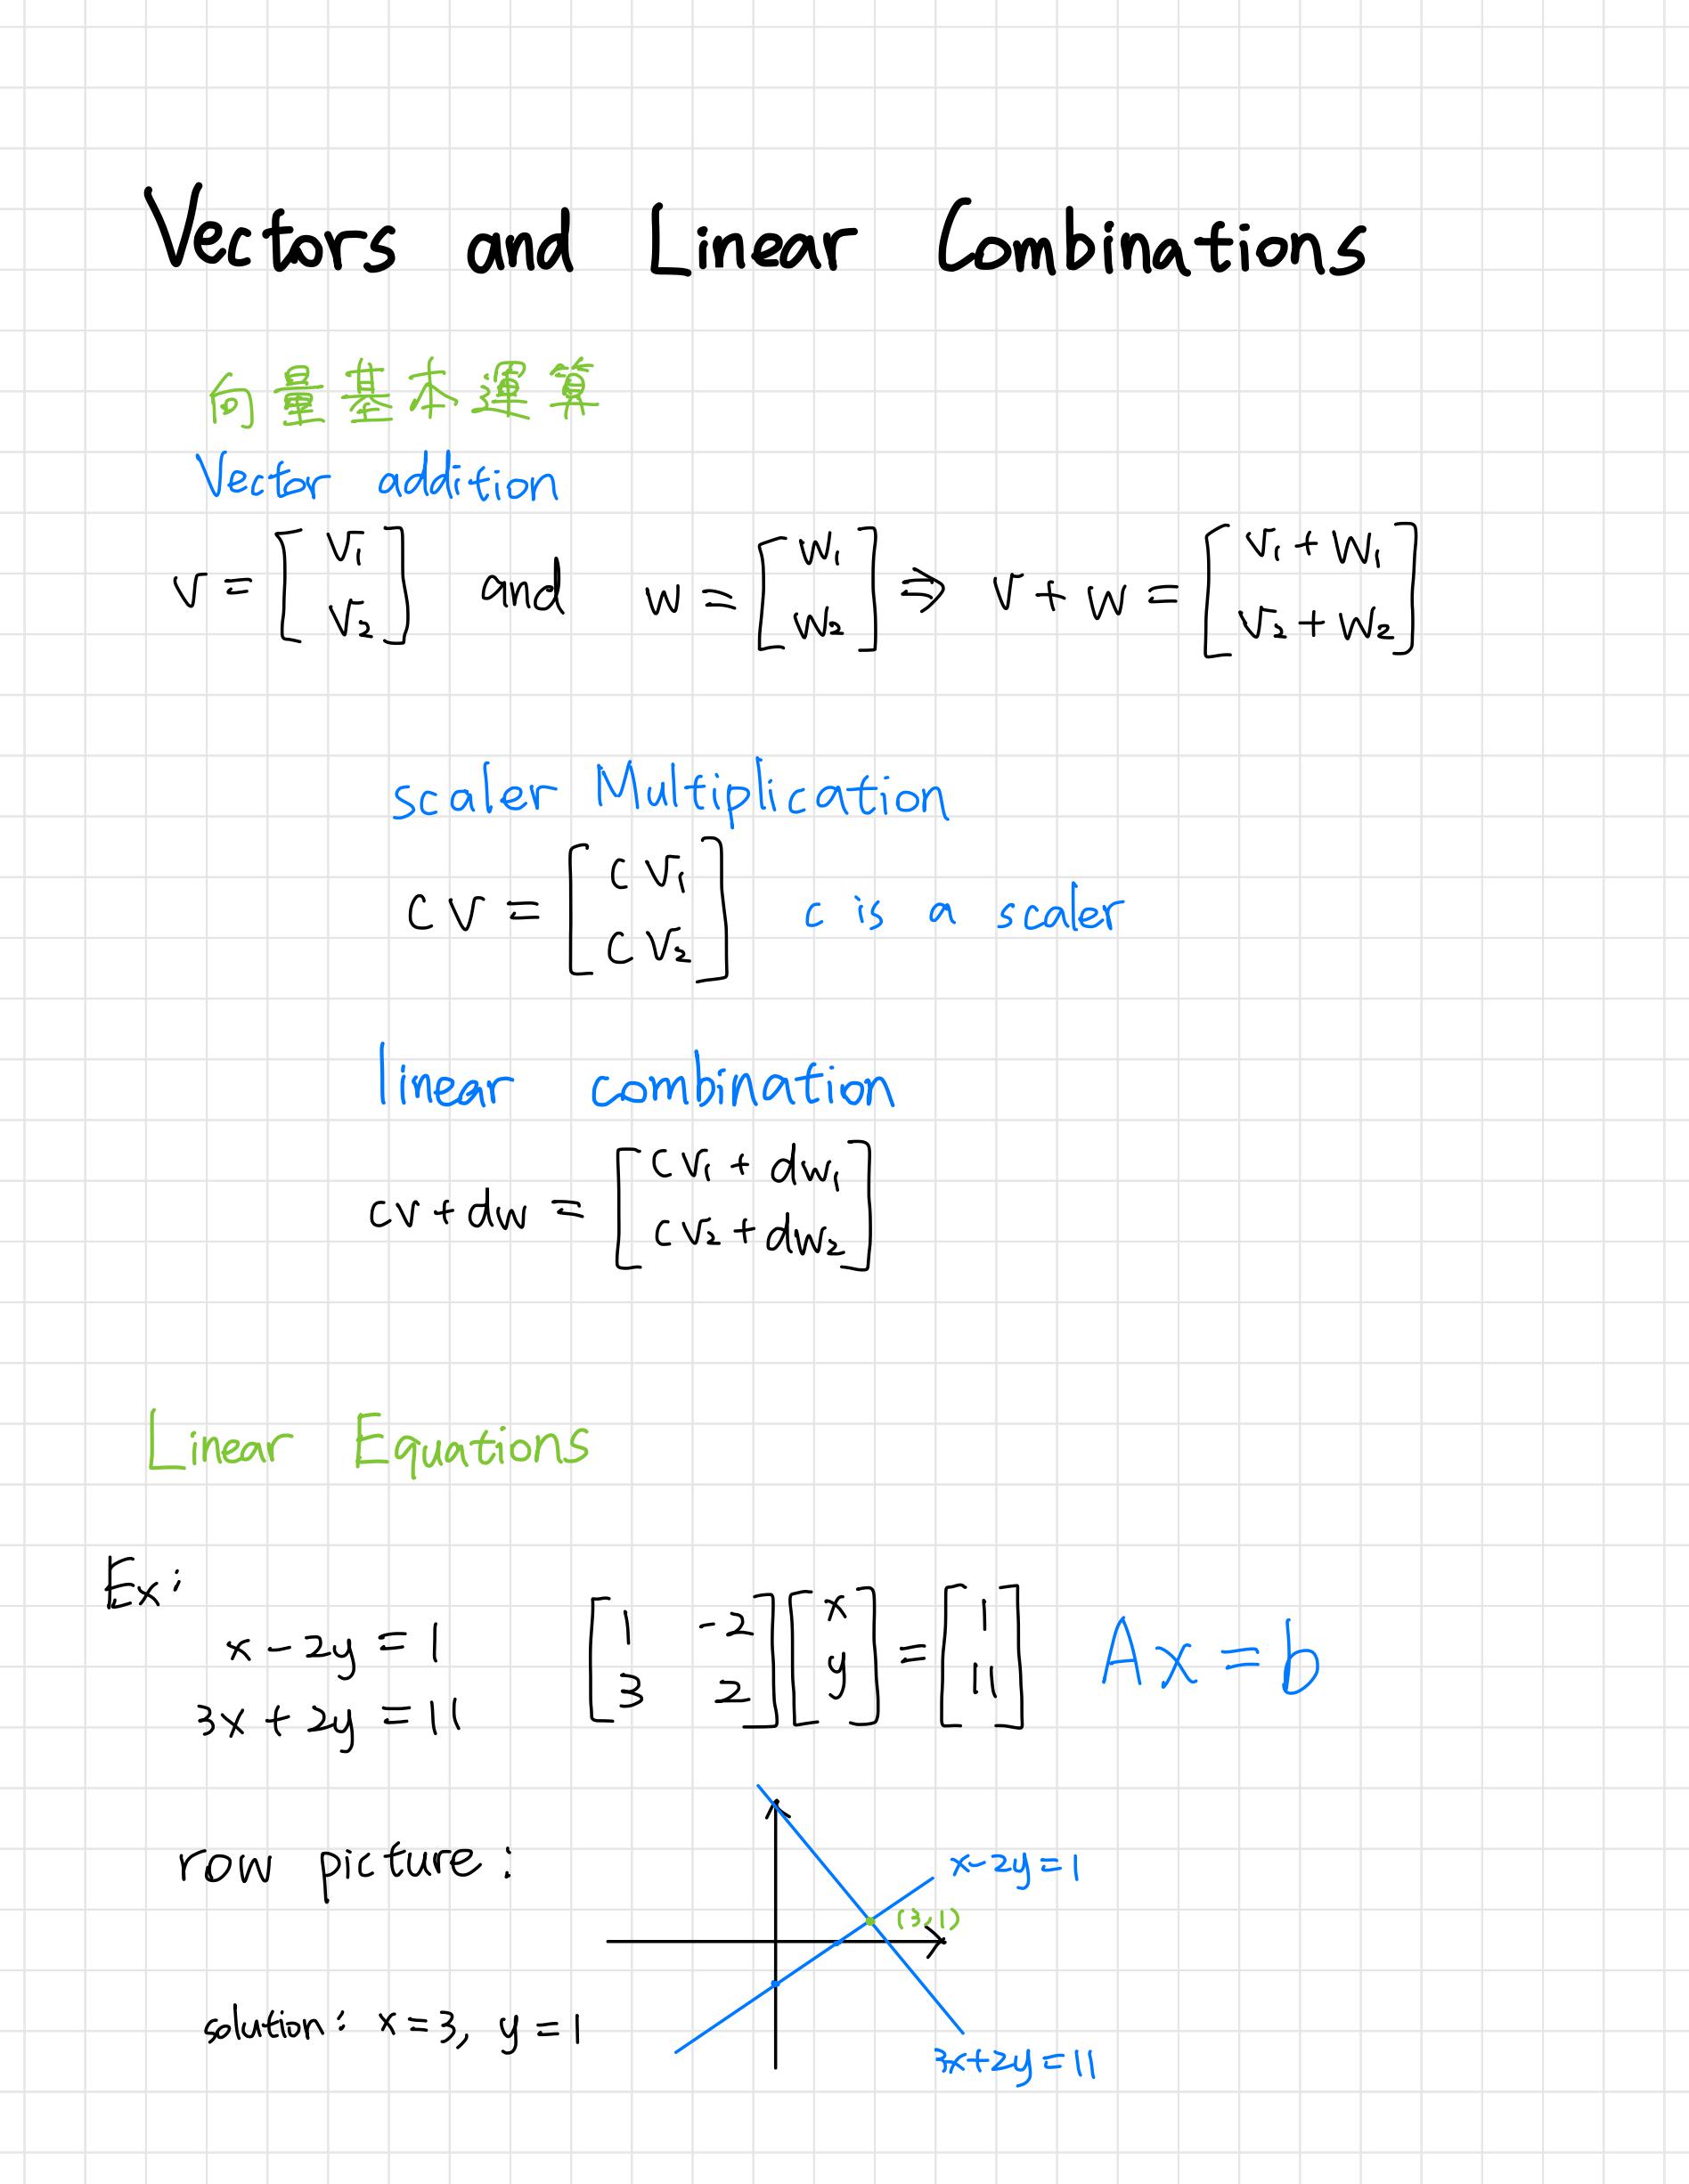 Vectors and Linear Combinations
向量基本運算
Vector addition
v = [v₁ v₂] and w = [w₁ w₂] ⇒ v + w = [v₁ + w₁ v₂ + w₂]
scaler Multiplication
cv = [cv₁ cv₂] c is a scaler
linear combination
cv + dw = [cv₁ + dw₁ cv₂ + dw₂]
Linear Equations
Ex:
x - 2y = 1
3x + 2y = 11
[1 -2 3 2] [x y] = [1 11] Ax = b
row picture:
x - 2y = 1
(3, 1)
solution: x = 3, y = 1
3x + 2y = 11